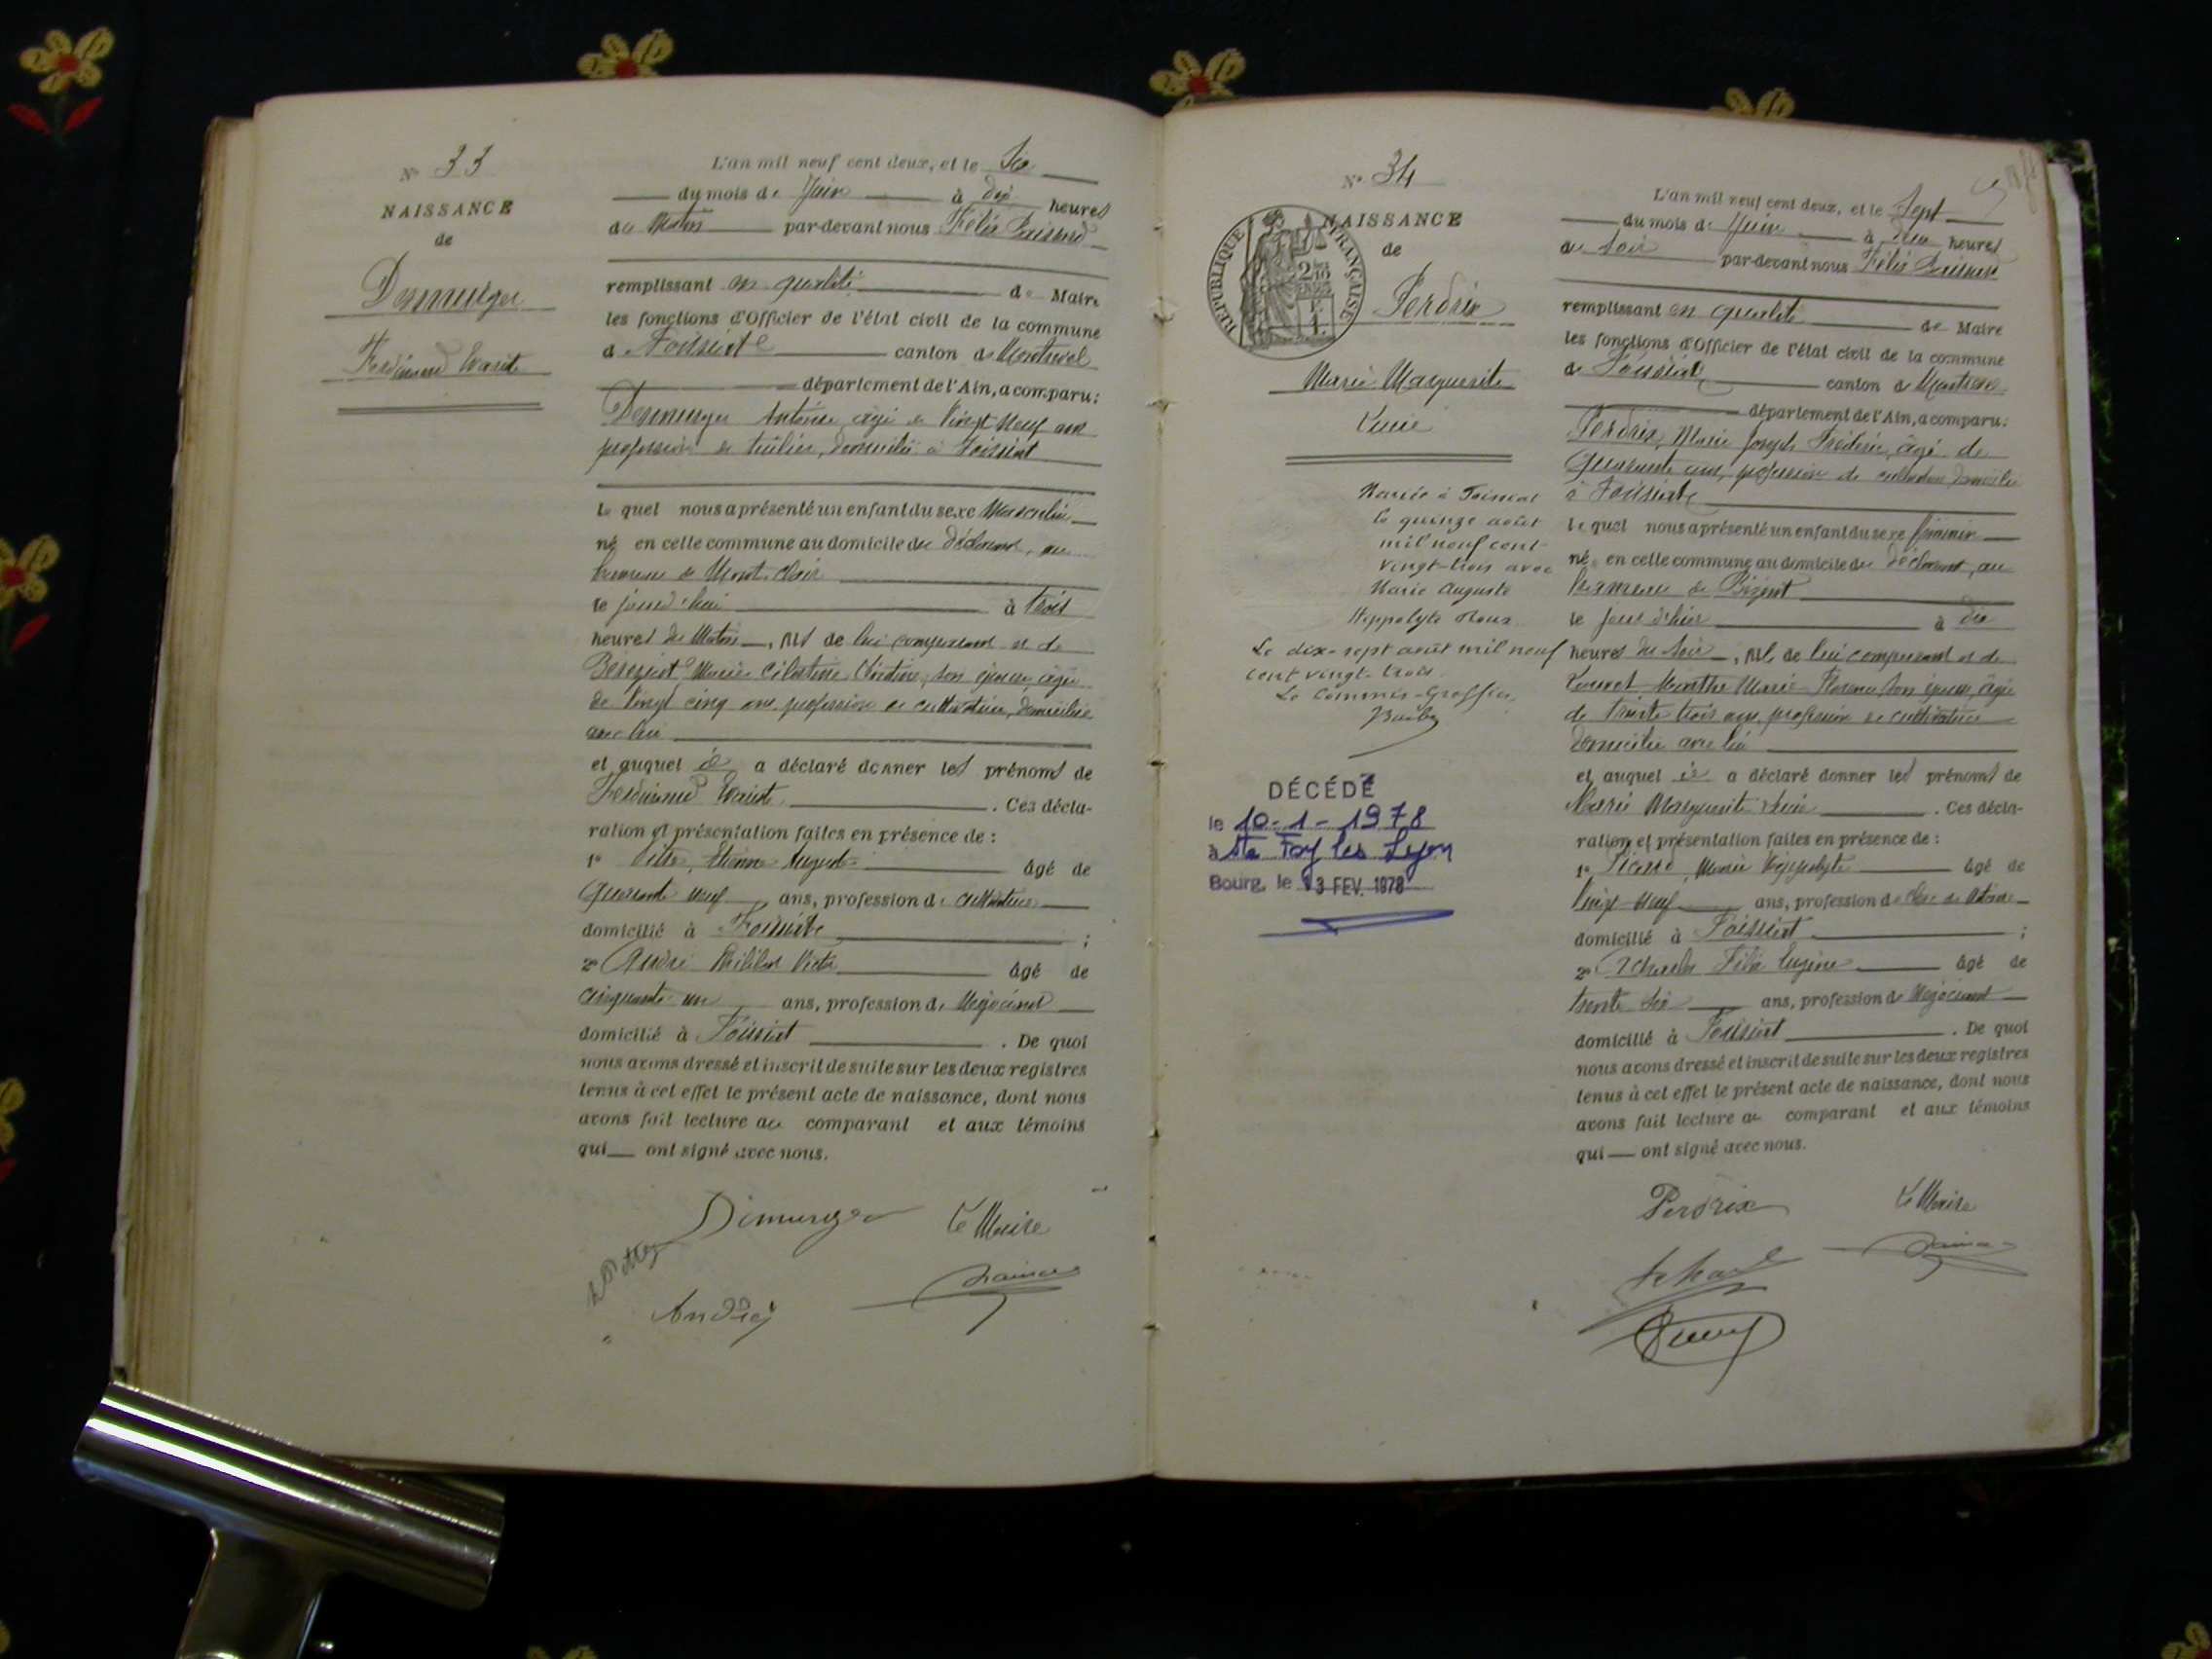 N° 33
NAISSANCE
de
Ferdinand
L'an mil neuf cent deux, et le Six
du mois de Juin à dix heures
du Matin par-devant nous Félix
remplissant en qualité de Maire
les fonctions d'Officier de l'état civil de la commune
de Foissiat canton de Montrevel
département de l'Ain, a comparu:
Antoine âgé de Vingt Neuf ans
profession de domicilié à Foissiat
le quel nous a présenté un enfant du sexe Masculin
né en cette commune au domicile du déclarant, au
hameau de Mont-clair
le jourd'hui à trois
heures du Matin, fils de lui comparant et de
Marie Célestine son épouse, âgée
de Vingt cinq ans, profession de cultivatrice, domiciliée
avec lui
et auquel il a déclaré donner les prénoms de
Ferdinand . Ces décla-
ration et présentation faites en présence de :
1° Etienne Auguste âgé de
Quarante neuf ans, profession de cultivateur
domicilié à Foissiat ;
2° André Philibert Victor âgé de
cinquante un ans, profession de Négociant
domicilié à Foissiat . De quoi
nous avons dressé et inscrit de suite sur les deux registres
tenus à cet effet le présent acte de naissance, dont nous
avons fait lecture au comparant et aux témoins
qui ont signé avec nous.
Le Maire
André
N° 34
NAISSANCE
de
REPUBLIQUE FRANÇAISE
Perdrix
Marie Marguerite
Lucie
Mariée à Foissiat
le quinze août
mil neuf cent
vingt-trois avec
Marie Auguste
Hippolyte
Le dix-sept août mil neuf
cent vingt-trois
Le Commis-Greffier
DÉCÉDÉ
le 10-1-1978
à Ste Foy les Lyon
Bourg, le 13 FEV. 1978
L'an mil neuf cent deux, et le Sept
du mois de Juin à heures
du soir par-devant nous Félix
remplissant en qualité de Maire
les fonctions d'Officier de l'état civil de la commune
de Foissiat canton de Montrevel
département de l'Ain, a comparu:
Perdrix, Marie Joseph Frédéric, âgé de
Quarante ans, profession de cultivateur, domicilié
à Foissiat
le quel nous a présenté un enfant du sexe féminin
né en cette commune au domicile du déclarant, au
hameau de
le jour d'hier à dix
heures du soir, fille de lui comparant et de
Marthe Marie Florence, son épouse, âgée
de trente trois ans, profession de cultivatrice
domiciliée avec lui
et auquel il a déclaré donner les prénoms de
Marie Marguerite Lucie . Ces décla-
ration et présentation faites en présence de :
1° Marie Hippolyte âgé de
Vingt-Neuf ans, profession de clerc de notaire
domicilié à Foissiat ;
2° Félix Eugène âgé de
trente six ans, profession de Négociant
domicilié à Foissiat . De quoi
nous avons dressé et inscrit de suite sur les deux registres
tenus à cet effet le présent acte de naissance, dont nous
avons fait lecture au comparant et aux témoins
qui ont signé avec nous.
Perdrix
Le Maire